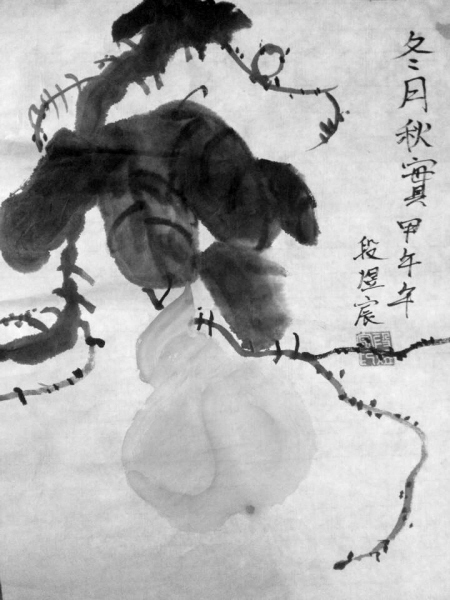 冬月秋實甲午年
段煜宸